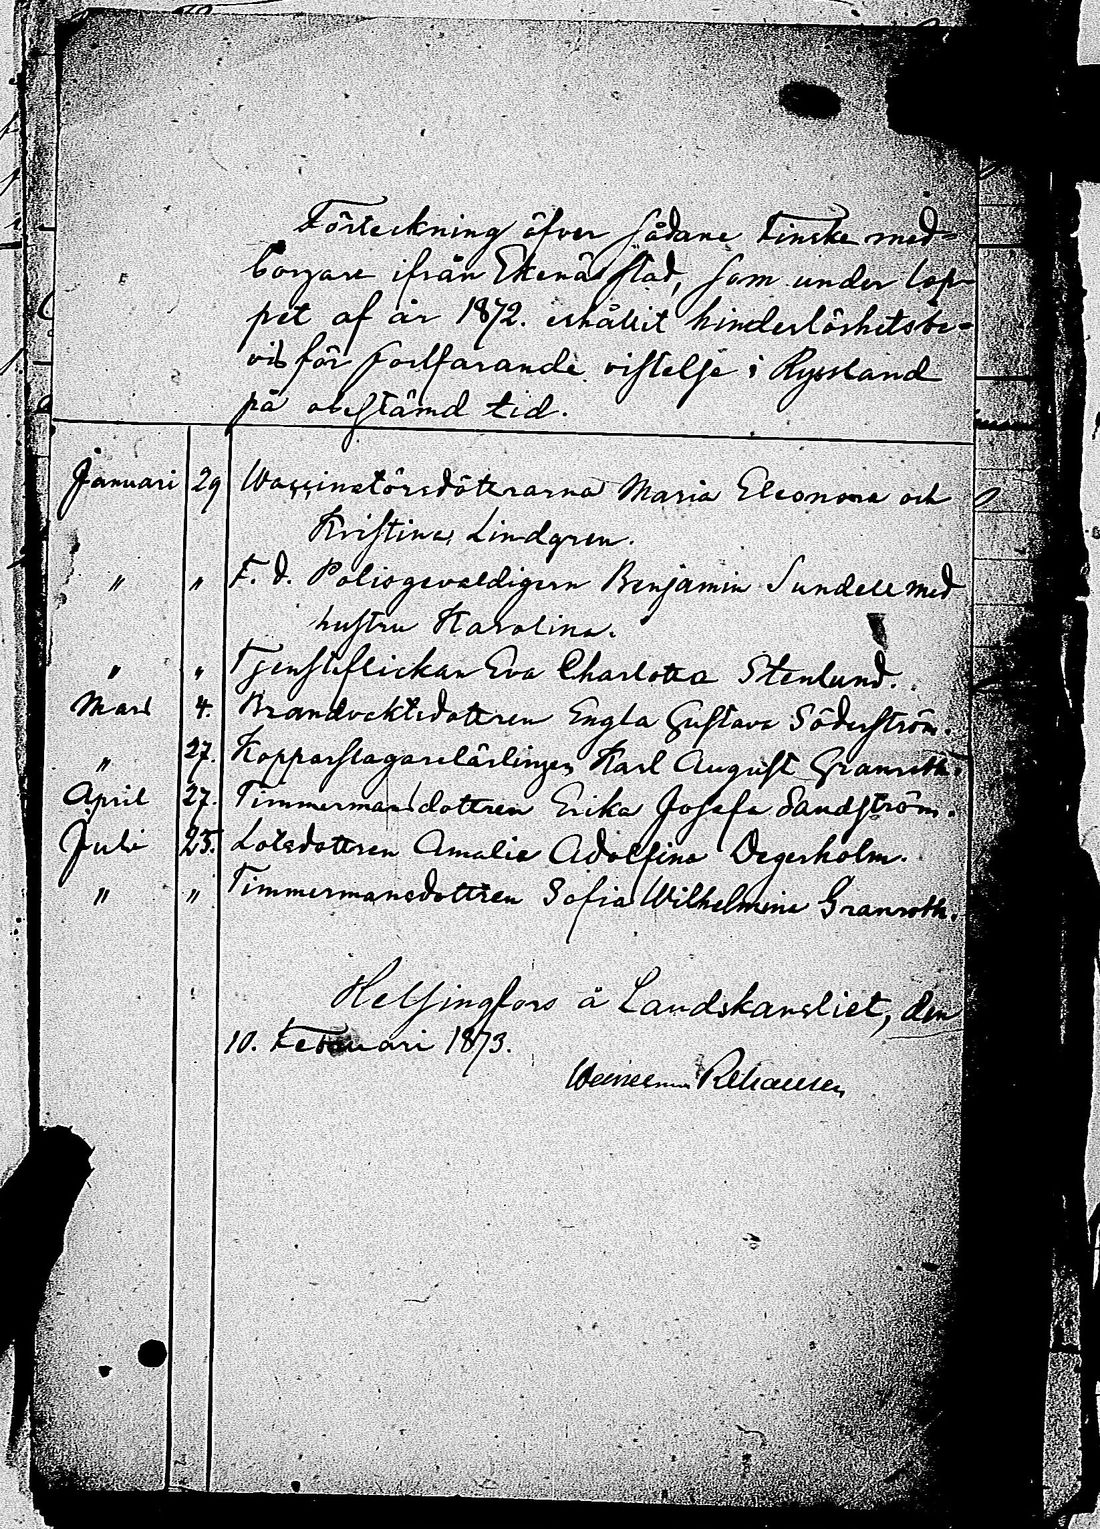 Förteckning öfver sådane Finske med-
borgare ifrån Ekenäs stad, som under lop-
pet af år 1872. erhållit hinderlöshetsbe-
vis för fortfarande vistelse i Ryssland
på obestämd tid.
Januari 29 Waccinatörsdöttrarna Maria Eleonora och
Kristina Lindgren.
" " F. d. Polisgevaldigern Benjamin Sundell med
hustru Karolina.
" " Tjensteflickan Eva Charlotta Stenlund.
Mars 4. Brandvaktsdottren Engla Gustava Söderström.
" 27. Kopparslagarelärlingen Karl August Granroth.
April 27. Timmermansdottren Erika Josefa Sandström.
Juli 25. Lotsdottren Amalia Adolfina Degerholm.
" " Timmermansdottren Sofia Wilhelmina Granroth.
Helsingfors å Landskansliet, den
10. Februari 1873.